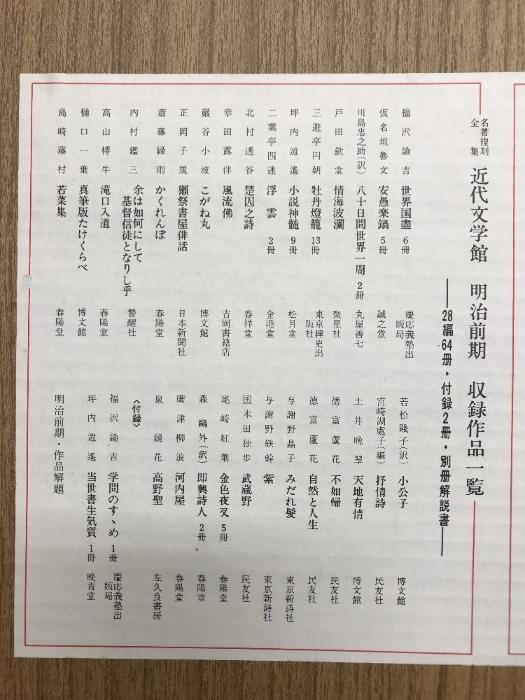 名著複刻全集 近代文学館 明治前期 収録作品一覧
――28編64冊・付録2冊・別冊解説書――
福沢諭吉 世界国盡 6冊 慶応義塾出版局
仮名垣魯文 安愚楽鍋 5冊 誠之堂
川島忠之助(訳) 八十日間世界一周 2冊 丸屋善七
戸田欽堂 情海波瀾 聚星社
三遊亭円朝 牡丹燈籠 13冊 東京稗史出版社
坪内逍遙 小説神髄 9冊 松月堂
二葉亭四迷 浮雲 2冊 金港堂
北村透谷 楚囚之詩 春祥堂
幸田露伴 風流佛 吉岡書籍店
巌谷小波 こがね丸 博文館
正岡子規 獺祭書屋俳話 日本新聞社
斎藤緑雨 かくれんぼ 春陽堂
内村鑑三 余は如何にして基督信徒となりし乎 警醒社
高山樗牛 滝口入道 春陽堂
樋口一葉 真筆版たけくらべ 博文館
島崎藤村 若菜集 春陽堂
若松賤子(訳) 小公子 博文館
宮崎湖處子(編) 抒情詩 民友社
土井晩翠 天地有情 博文館
徳富蘆花 不如帰 民友社
徳富蘆花 自然と人生 民友社
与謝野晶子 みだれ髪 東京新詩社
与謝野鉄幹 紫 東京新詩社
国木田独歩 武蔵野 民友社
尾崎紅葉 金色夜叉 5冊 春陽堂
森鷗外(訳) 即興詩人 2冊 春陽堂
廣津柳浪 河内屋 春陽堂
泉鏡花 高野聖 左久良書房
〈付録〉
福沢諭吉 学問のすゝめ 1冊 慶応義塾出版局
坪内逍遙 当世書生気質 1冊 晩青堂
明治前期・作品解題